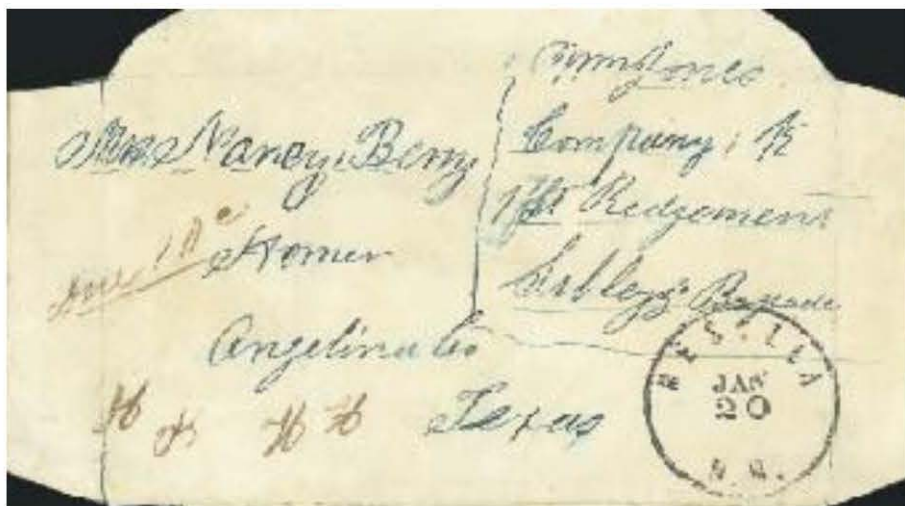 Mrs. Nancy Berry
Due 10c
Homer
Angelina Co
Texas
Jones
Company
1st Redgement
Sibleys Brigade
MESILLA
JAN
20